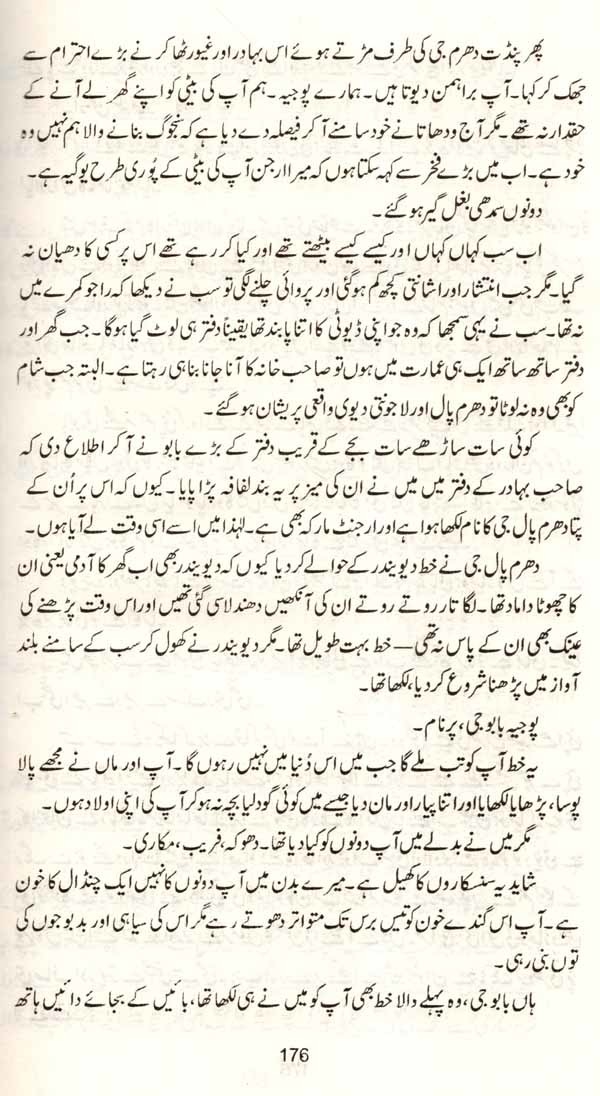 پھر پنڈت دھرم جی کی طرف مڑتے ہوئے اس بہادر اور غیور ٹھاکر نے بڑے احترام سے
جھک کر کہا۔ آپ براہمن دیوتا ہیں۔ ہمارے پوجیہ۔ ہم آپ کی بیٹی کو اپنے گھر لے آنے کے
حقدار نہ تھے۔ مگر آج ودھاتا نے خود سامنے آ کر فیصلہ دے دیا ہے کہ سنجوگ بنانے والا ہم نہیں وہ
خود ہے۔ اب میں بڑے فخر سے کہہ سکتا ہوں کہ میرا ارجن آپ کی بیٹی کے پُوری طرح یوگیہ ہے۔
دونوں سمدھی بغل گیر ہو گئے۔
اب سب کہاں کہاں اور کیسے کیسے بیٹھتے تھے اور کیا کر رہے تھے اس پر کسی کا دھیان نہ
گیا۔ مگر جب انتشار اور اشانتی کچھ کم ہو گئی اور پروائی چلنے لگی تو سب نے دیکھا کہ راجو کمرے میں
نہ تھا۔ سب نے یہی سمجھا کہ وہ جو اپنی ڈیوٹی کا اتنا پابند تھا یقیناً دفتر ہی لوٹ گیا ہوگا۔ جب گھر اور
دفتر ساتھ ساتھ ایک ہی عمارت میں ہوں تو صاحب خانہ کا آنا جانا بنا ہی رہتا ہے۔ البتہ جب شام
کو بھی وہ نہ لوٹا تو دھرم پال اور لاجونتی دیوی واقعی پریشان ہو گئے۔
کوئی سات ساڑھے سات بجے کے قریب دفتر کے بڑے بابو نے آ کر اطلاع دی کہ
صاحب بہادر کے دفتر میں میں نے ان کی میز پر یہ بند لفافہ پڑا پایا۔ کیوں کہ اس پر اُن کے
پتا دھرم پال جی کا نام لکھا ہوا ہے اور ارجنٹ مارکہ بھی ہے۔ لہٰذا میں اسے اسی وقت لے آیا ہوں۔
دھرم پال جی نے خط دیویندر کے حوالے کر دیا کیوں کہ دیویندر بھی اب گھر کا آدمی یعنی ان
کا چھوٹا داماد تھا۔ لگاتار روتے روتے ان کی آنکھیں دھندلا سی گئی تھیں اور اس وقت پڑھنے کی
عینک بھی ان کے پاس نہ تھی — خط بہت طویل تھا۔ مگر دیویندر نے کھول کر سب کے سامنے بلند
آواز میں پڑھنا شروع کر دیا، لکھا تھا۔
پوجیہ بابو جی، پرنام۔
یہ خط آپ کو تب ملے گا جب میں اس دُنیا میں نہیں رہوں گا۔ آپ اور ماں نے مجھے پالا
پوسا، پڑھایا لکھایا اور اتنا پیار اور مان دیا جیسے میں کوئی گود لیا بچہ نہ ہو کر آپ کی اپنی اولاد ہوں۔
مگر میں نے بدلے میں آپ دونوں کو کیا دیا تھا۔ دھوکہ، فریب، مکاری۔
شاید یہ سنسکاروں کا کھیل ہے۔ میرے بدن میں آپ دونوں کا نہیں ایک چنڈال کا خون
ہے۔ آپ اس گندے خون کو تیس برس تک متواتر دھوتے رہے مگر اس کی سیاہی اور بدبو جوں کی
توں بنی رہی۔
ہاں بابو جی، وہ پہلے والا خط بھی آپ کو میں نے ہی لکھا تھا، بائیں کے بجائے دائیں ہاتھ
176